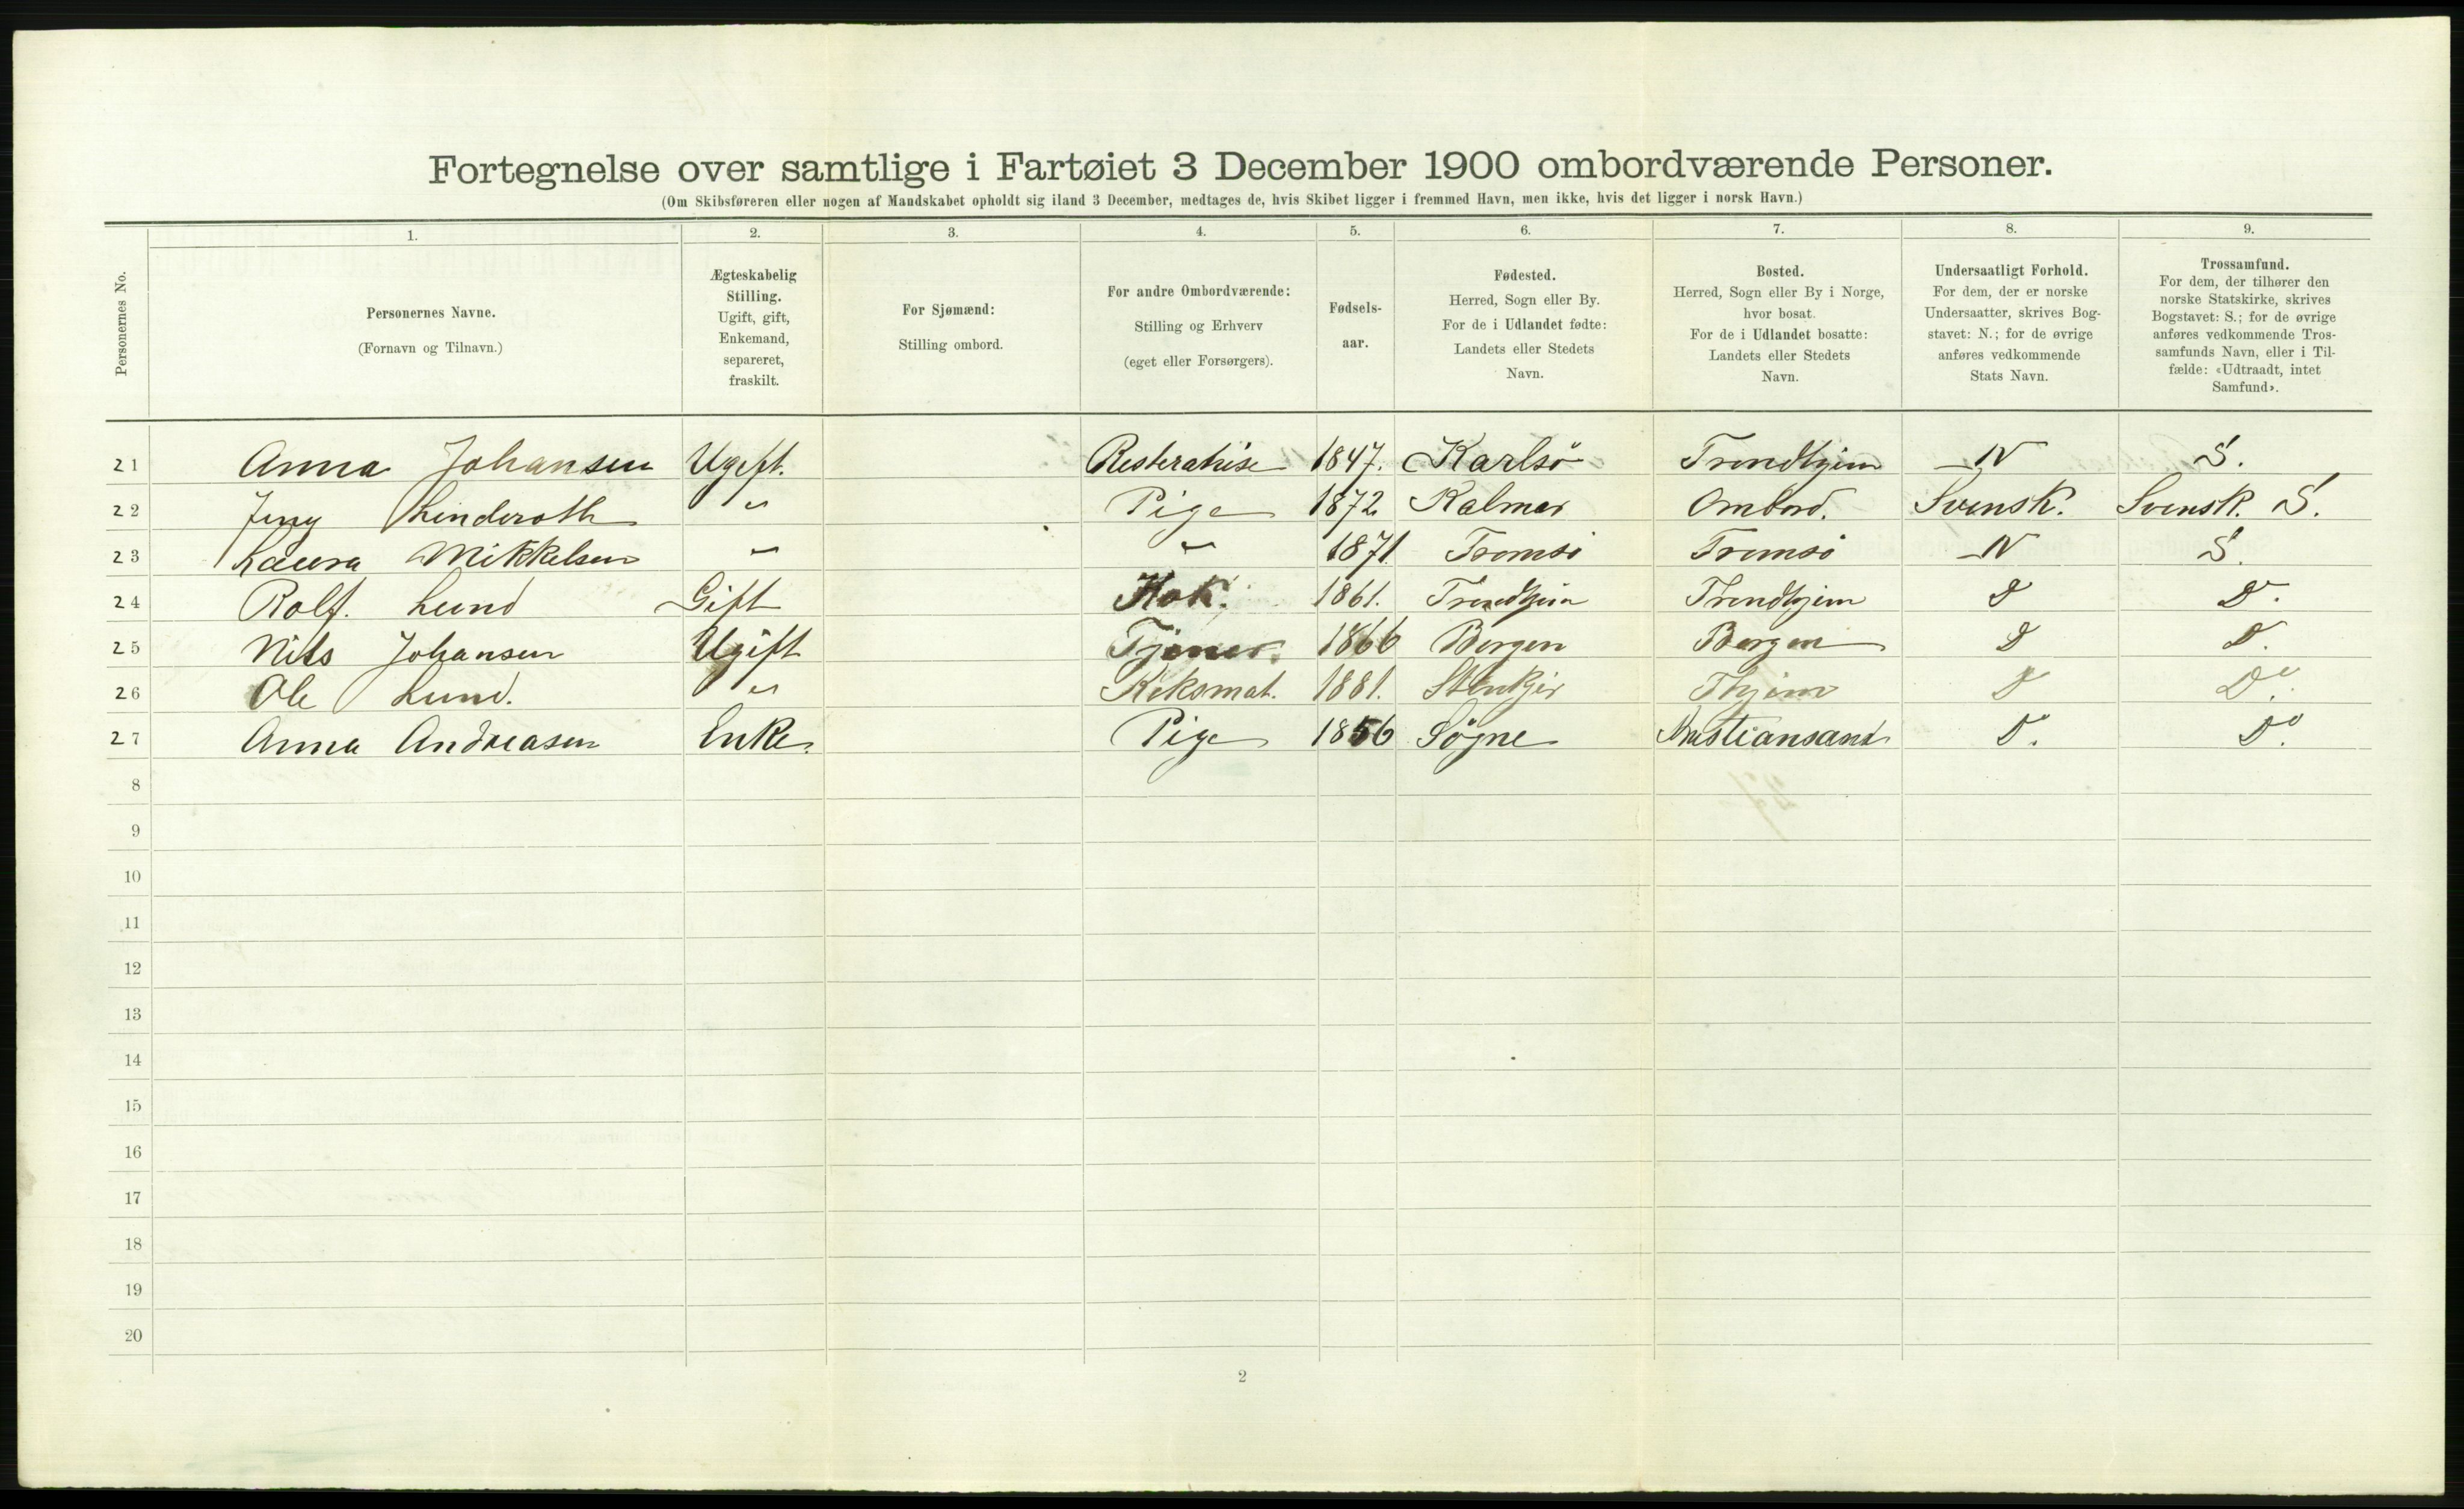 Fortegnelse over samtlige i Fartøiet 3 December 1900 ombordværende Personer.
(Om Skibsføreren eller nogen af Mandskabet opholdt sig iland 3 December, medtages de, hvis Skibet ligger i fremmed Havn, men ikke, hvis det ligger i norsk Havn.)
1. 2. 3. 4. 5. 6. 7. 8. 9.
Personernes No.
Personernes Navne.
(Fornavn og Tilnavn.)
Ægteskabelig
Stilling.
Ugift, gift,
Enkemand,
separeret,
fraskilt.
For Sjømænd:
Stilling ombord.
For andre Ombordværende:
Stilling og Erhverv
(eget eller Forsørgers).
Fødsels-
aar.
Fødested.
Herred, Sogn eller By.
For de i Udlandet fødte:
Landets eller Stedets
Navn.
Bosted.
Herred, Sogn eller By i Norge,
hvor bosat.
For de i Udlandet bosatte:
Landets eller Stedets
Navn.
Undersaatligt Forhold.
For dem, der er norske
Undersaatter, skrives Bog-
stavet: N.; for de øvrige
anføres vedkommende
Stats Navn.
Trossamfund.
For dem, der tilhører den
norske Statskirke, skrives
Bogstavet: S.; for de øvrige
anføres vedkommende Tros-
samfunds Navn, eller i Til-
fælde: «Udtraadt, intet
Samfund».
21 Anna Johansen Ugift. 1847. Karlsö Trondhjem N S.
22 Jeny Linderoth " Pige 1872 Kalmar Ombord. Svensk. Svensk. S.
23 Laura Mikkelsen " " 1871. Tromsö Tromsö N S.
24 Rolf. Lund Gift Kok. 1861. Trondhjem Trondhjem D D.
25 Nils Johansen Ugift Tjener. 1866 Bergen Bergen D D.
26 Ole Lund. " Koksmat. 1881. Stenkjer Thjem D Do.
27 Anna Andreasen Enke. Pige 1856 Sögne Kristiansand D. Do.
8
9
10
11
12
13
14
15
16
17
18
19
20
2